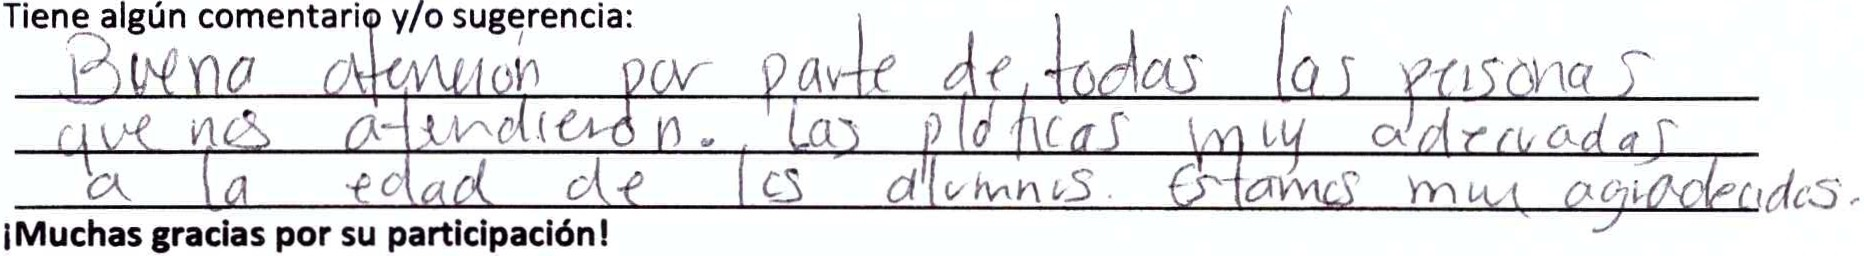 Tiene algún comentario y/o sugerencia:
Buena atención por parte de todas las personas
que nos atendieron. Las pláticas muy adecuadas
a la edad de los alumnos. Estamos muy agradecidos.
¡Muchas gracias por su participación!